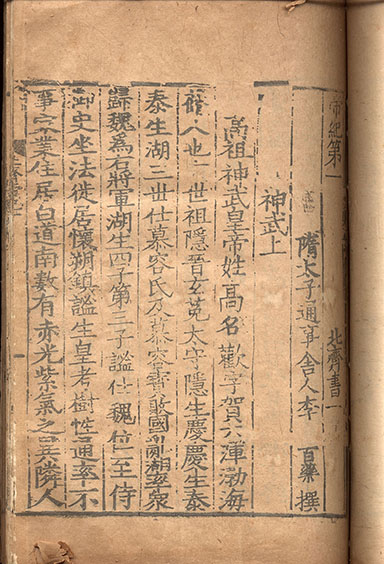 帝紀第一 北齊書一
隋太子通事舍人李 百藥 撰
神武上
高祖神武皇帝姓高名歡字賀六渾渤海
蓨人也六世祖隱晉玄菟太守隱生慶慶生泰
泰生湖三世仕慕容氏及慕容寶敗國亂湖率衆
歸魏爲右將軍湖生四子第三子謐仕魏位至侍
御史坐法徙居懷朔鎮謐生皇考樹性通率不
事家業住居白道南數有赤光紫氣之異隣人